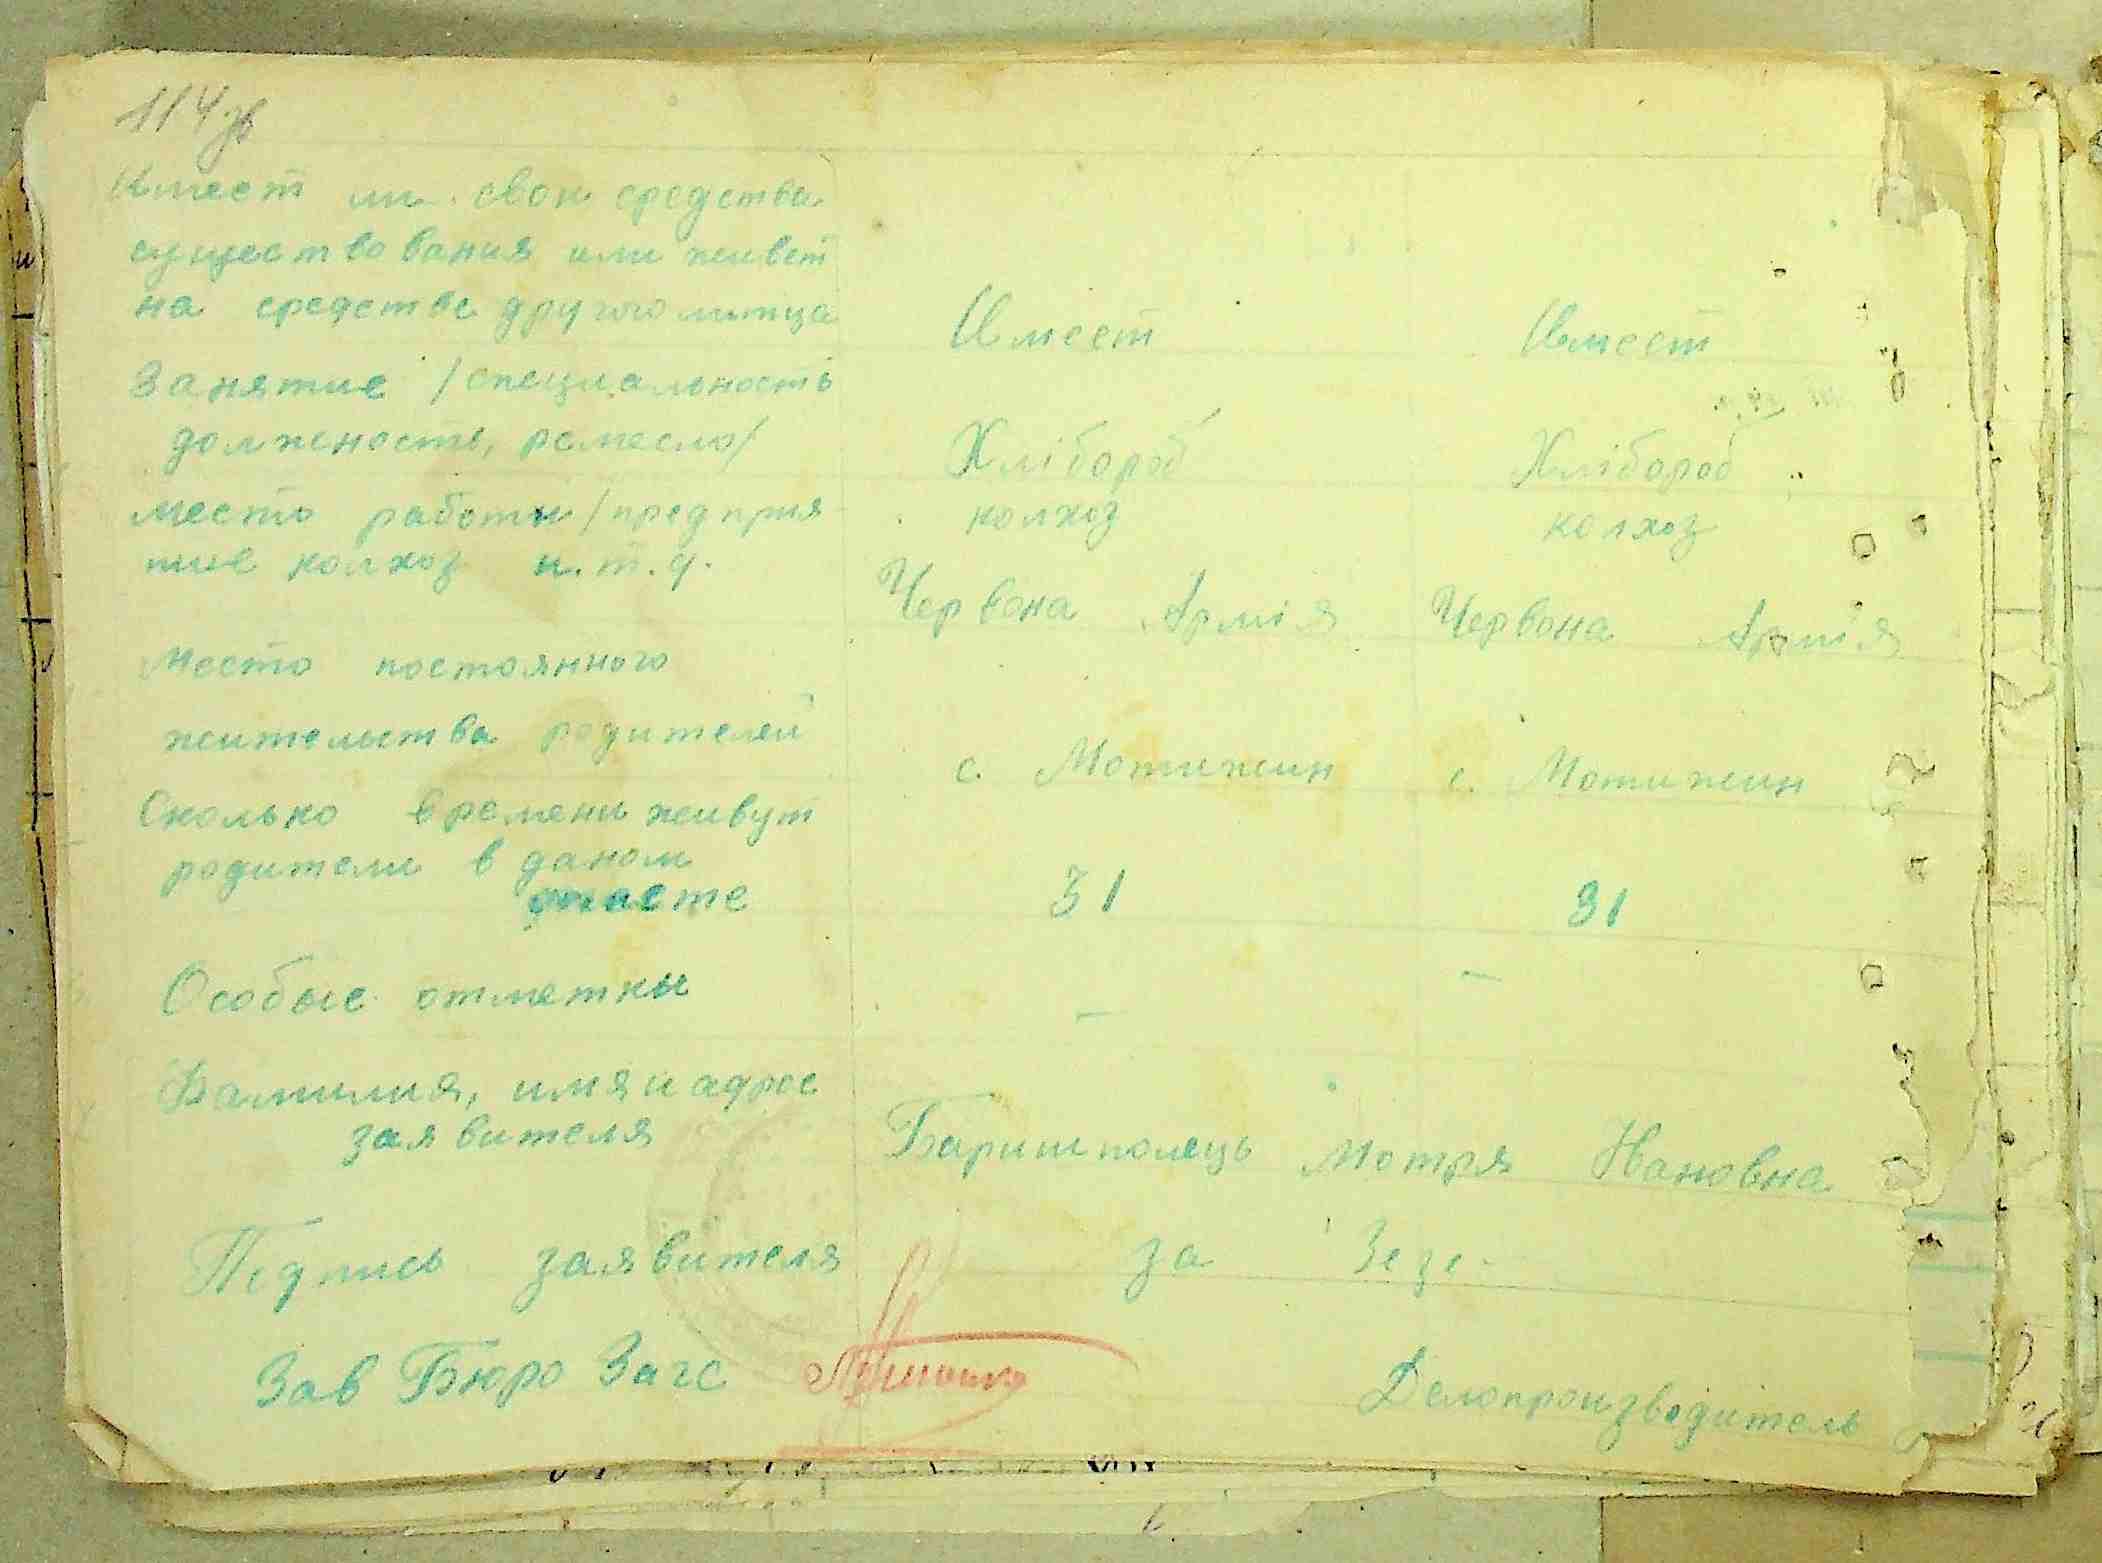 114 зв
Имеет ли свои средства
существования или живет
на средства другого липца
Имеет Имеет
Занятие /специальность
должность, ремесло/
Хлібороб Хлібороб
место работы /предприя
тие колхоз и.т.д.
колхоз колхоз
Червона Армія Червона Армія
Место постоянного
жительства родителей
с. Мотижин с. Мотижин
Сколько времени живут
родители в даном
месте
31 31
Особые отметкы
— —
Фамилия, имя и адрес
заявителя
Баришполець Мотря Ивановна
Подпись заявителя за
Зав Бюро Загс Делопроизводитель